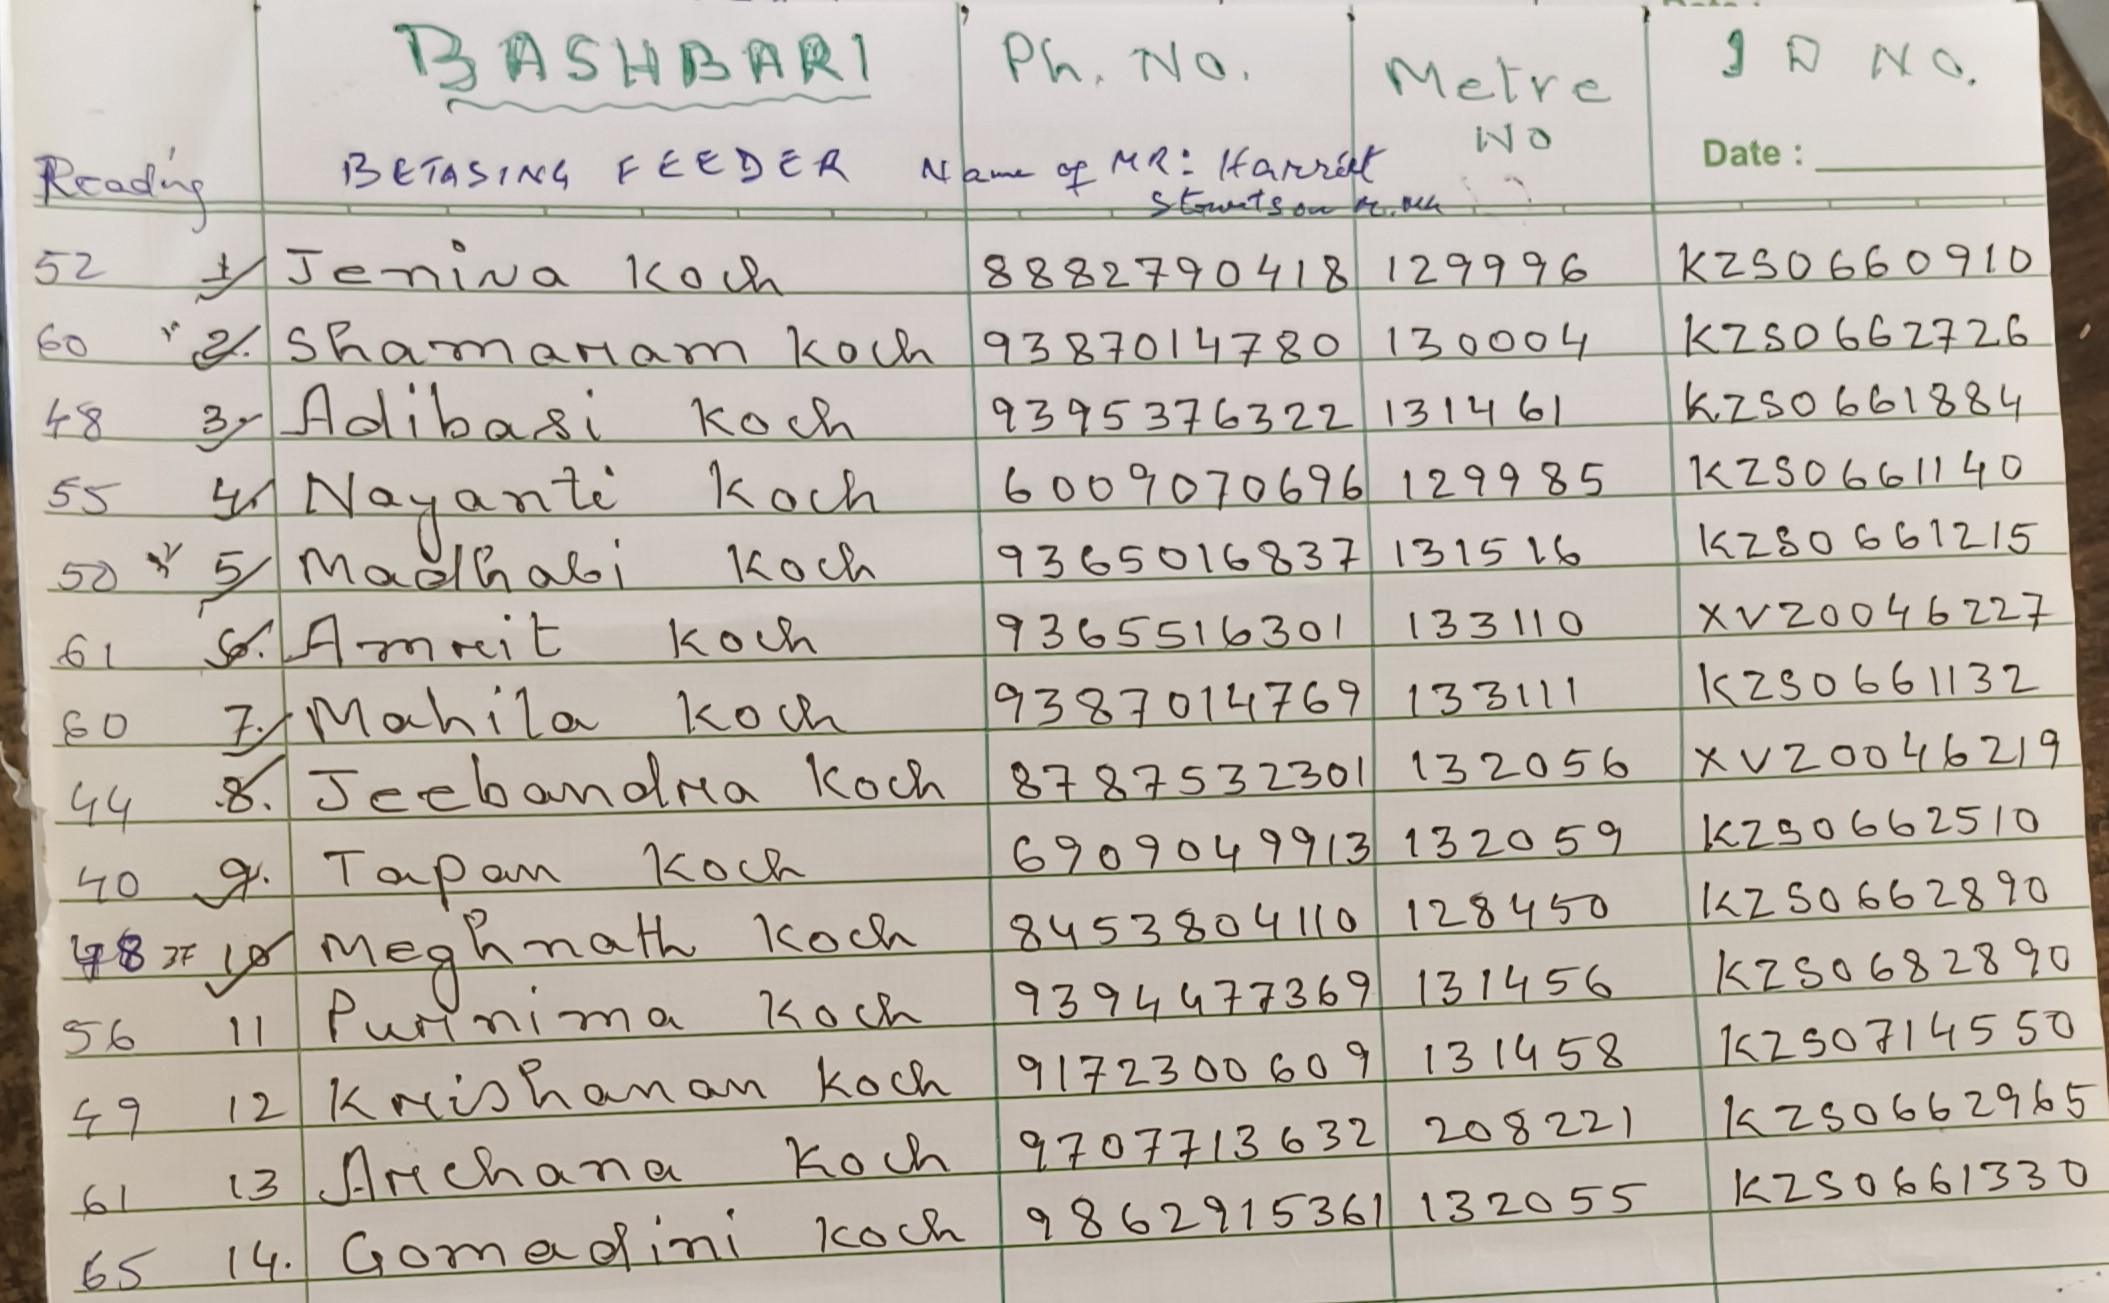 BASHBARI Ph. No. Metre No I D NO.
Date :
Reading BETASING FEEDER Name of MR: Harriet
52 1 Jenina Koch 8882790418 129996 KZS0660910
60 2. Shamaram Koch 9387014780 130004 KZS0662726
48 3 Adibasi Koch 9395376322 131461 KZS0661884
55 4 Nayanti Koch 6009070696 129985 KZS0661140
50 5 Madhabi Koch 9365016837 131516 KZS0661215
61 6. Amrit Koch 9365516301 133110 XVZ0046227
60 7. Mahila Koch 9387014769 133111 KZS0661132
44 8. Jeebandra Koch 8787532301 132056 XVZ0046219
40 9. Tapan Koch 6909049913 132059 KZS0662510
48 10 Meghnath Koch 8453804110 128450 KZS0662890
56 11 Purnima Koch 9394477369 131456 KZS0682890
49 12 Krishanan Koch 9172300609 131458 KZS0714550
61 13 Archana Koch 9707713632 208221 KZS0662965
65 14. Gomadini Koch 9862915361 132055 KZS0661330